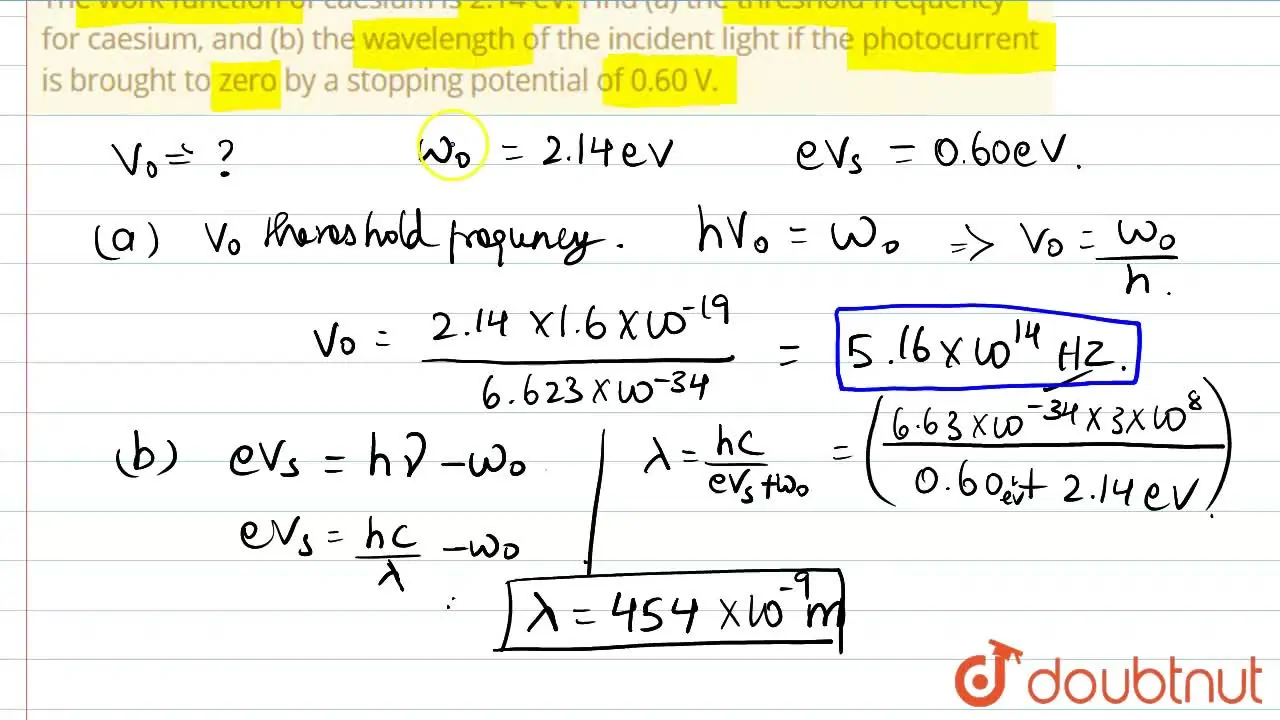 The work function of caesium is 2.14 eV. Find (a) the threshold frequency
for caesium, and (b) the wavelength of the incident light if the photocurrent
is brought to zero by a stopping potential of 0.60 V.
V₀ = ? ω₀ = 2.14 eV eVₛ = 0.60 eV.
(a) V₀ thereshold frequncy. hV₀ = ω₀ => V₀ = ω₀/h.
V₀ = 2.14 × 1.6 × 10⁻¹⁹ / 6.623 × 10⁻³⁴ = 5.16 × 10¹⁴ HZ.
(b) eVₛ = hν − ω₀
eVₛ = hc/λ − ω₀
λ = hc/eVₛ + ω₀ = (6.63 × 10⁻³⁴ × 3 × 10⁸ / 0.60 eV + 2.14 eV).
λ = 454 × 10⁻⁹ m
doubtnut